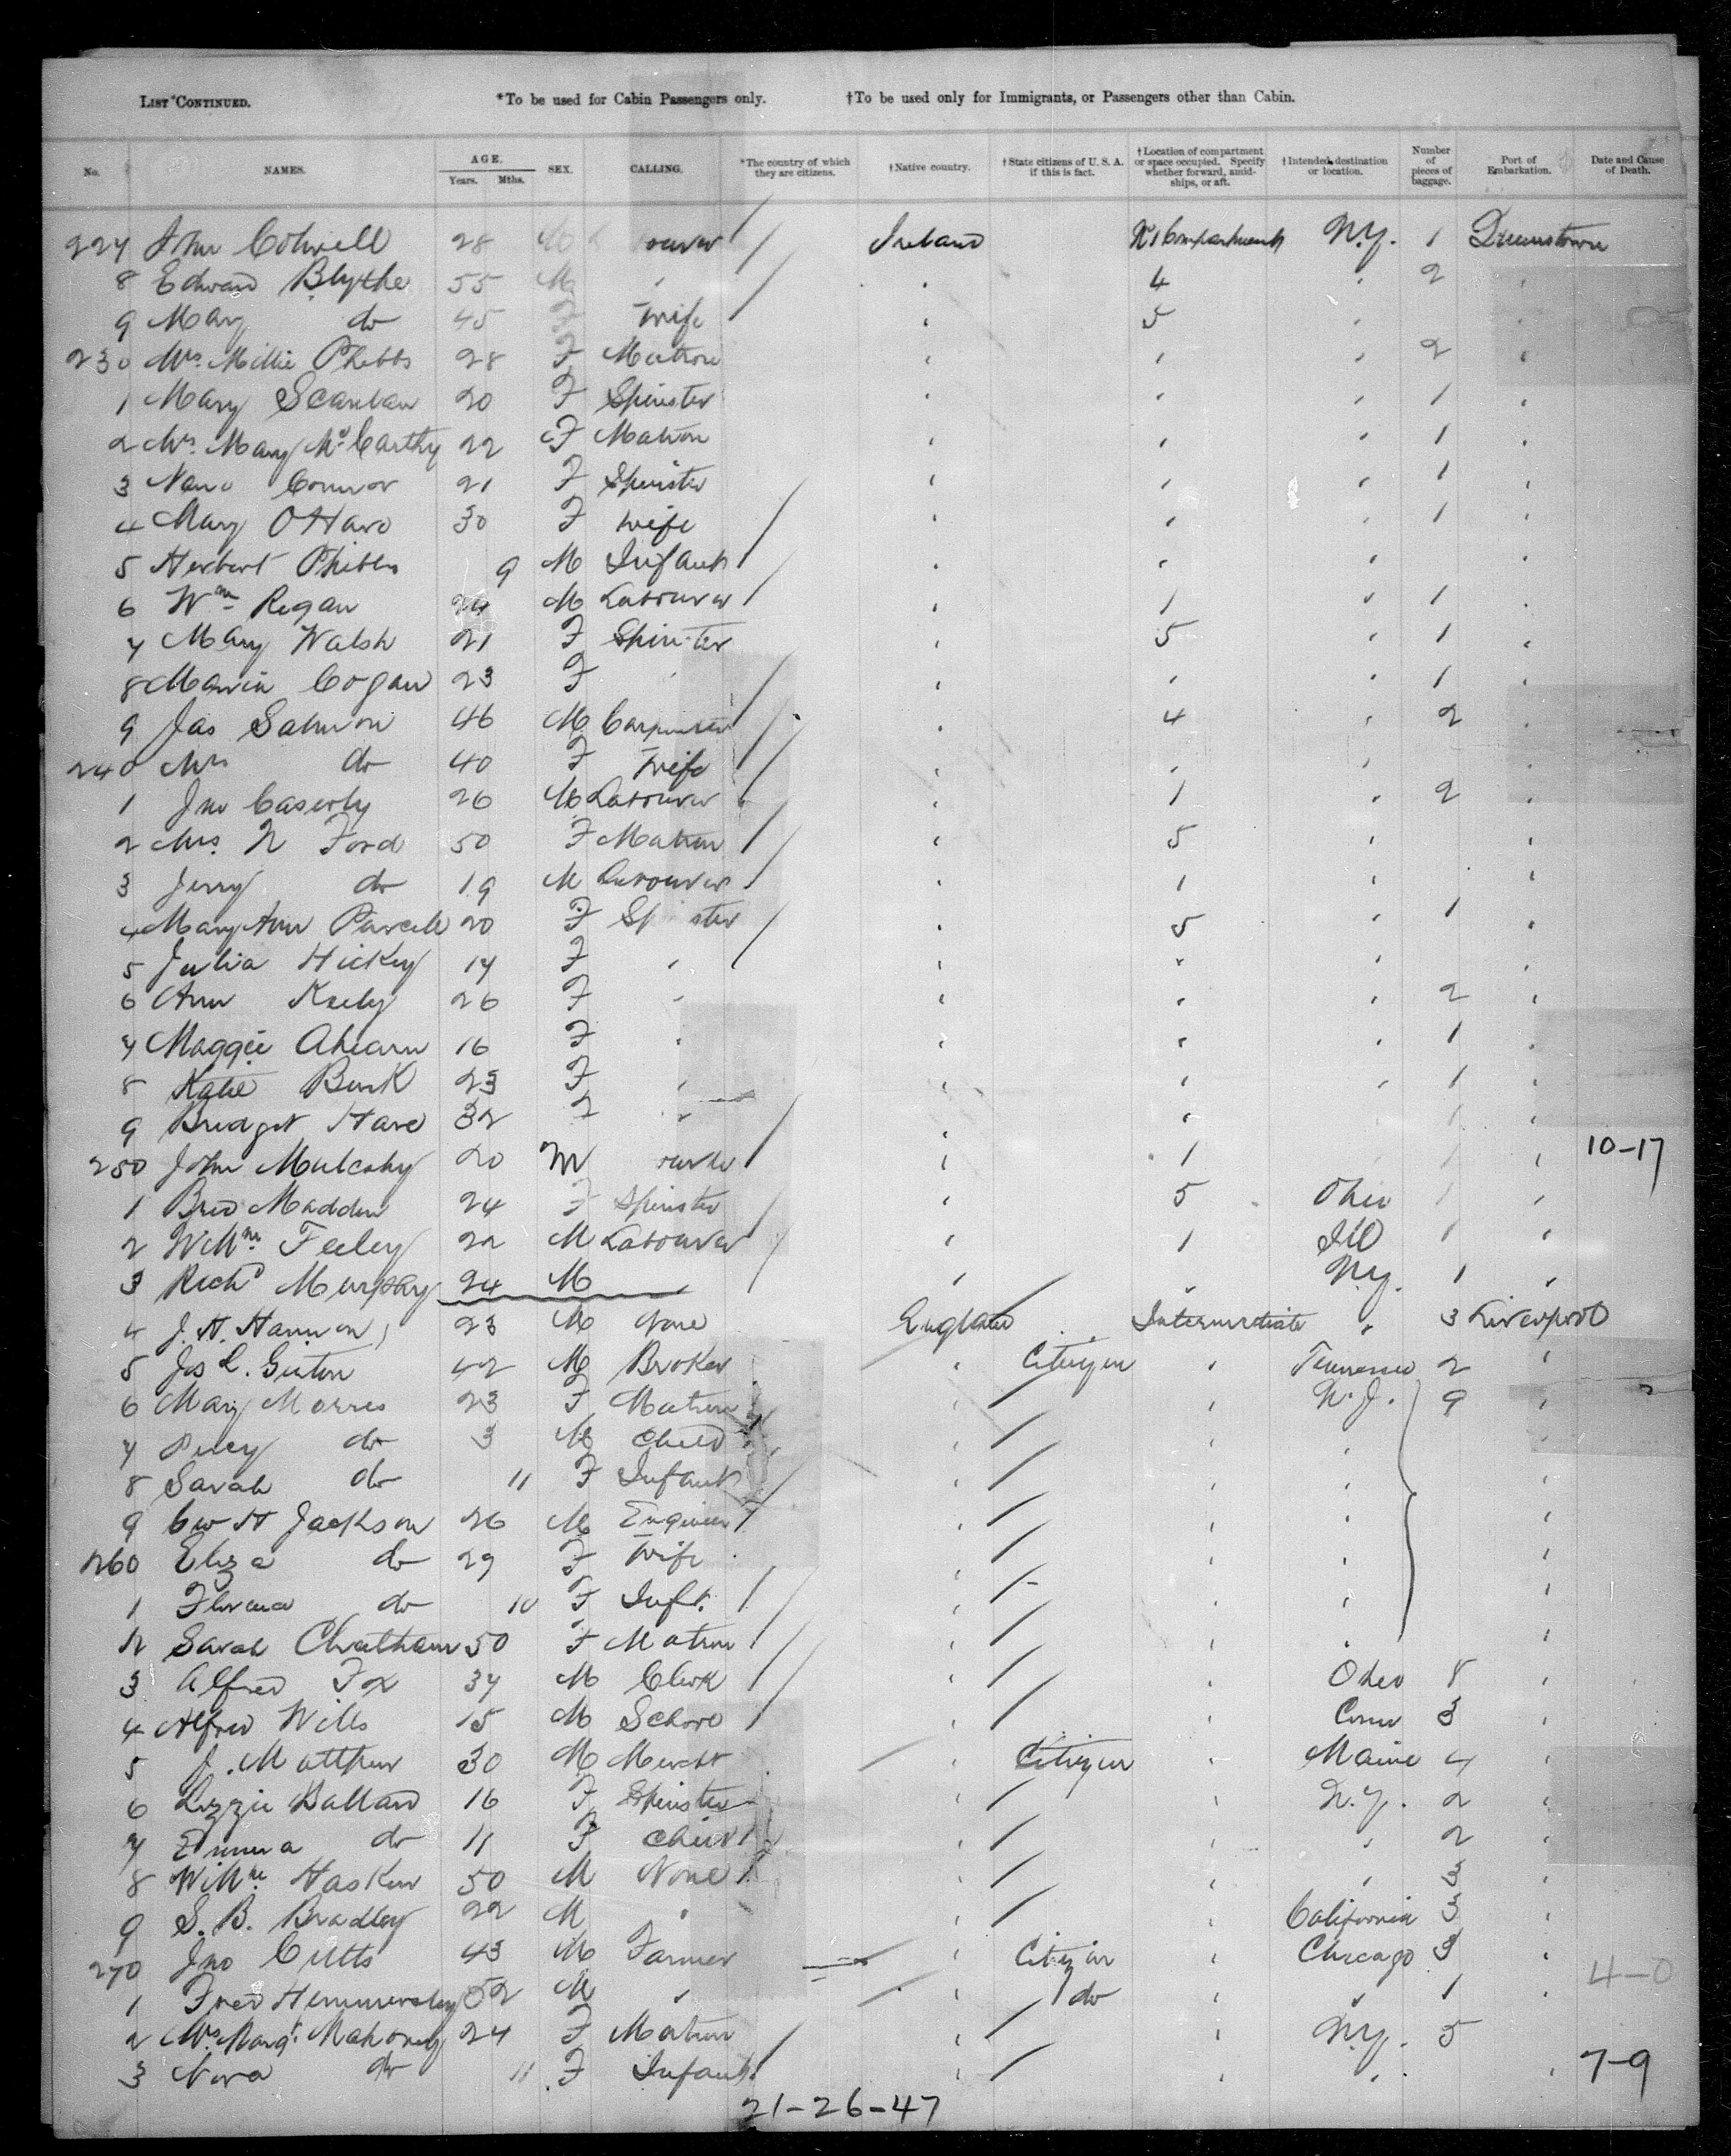 LIST CONTINUED. *To be used for Cabin Passengers only. †To be used only for Immigrants, or Passengers other than Cabin.
No. NAMES. AGE. Years. Mths. SEX. CALLING. *The country of which they are citizens. †Native country. †State citizens of U.S.A. if this is fact. †Location of compartment or space occupied. Specify whether forward, amidships, or aft. †Intended destination or location. Number of pieces of baggage. Port of Embarkation. Date and Cause of Death.
227 John Colwell 28 M Ireland No 1 Compartment N.Y. 1 Queenstown
8 Edward Blythe 55 M 4 2
9 Mary do 45 F Wife 5
230 Mrs. Millie Phibbs 28 F Matron 2
1 Mary Scanlan 20 F Spinster 1
2 Mrs. Mary McCarthy 22 F Matron 1
3 Nano Connor 21 F Spinster 1
4 Mary O'Hare 30 F Wife 1
5 Herbert Phibbs 9 M Infant
6 Wm Regan 24 M Labourer 1 1
7 Mary Walsh 21 F Spinster 5 1
8 Maria Cogan 23 F 1
9 Jas Salmon 46 M Carpenter 4 2
240 Mrs do 40 F Wife
1 Jno Caserly 26 M Labourer 1 2
2 Mrs. N Ford 50 F Matron 5
3 Jerry do 19 M Labourer 1
4 Mary Ann Purcell 20 F Spinster 5 1
5 Julia Hickey 17 F
6 Ann Keely 26 F 2
7 Maggie Ahearn 16 F 1
8 Katie Burk 23 F 1
9 Bridget Hare 32 F 1
250 John Mulcahy 20 M 1 1 10-17
1 Brid Madden 24 F Spinster 5 Ohio 1
2 Willm Feeley 22 M Labourer 1 Ill 1
3 Richd Murphy 24 M N.Y. 1
4 J. H. Harrison 23 M None England Intermediate 3 Liverpool
5 Jos L. 42 M Broker Citizen Tennessee 2
6 Mary Morris 23 F Matron N.J. 9
7 Percy do 3 M Child
8 Sarah do 11 F Infant
9 H Jackson 26 M Engineer
260 Eliza do 29 F Wife
1 Florence do 10 F Inft.
2 Sarah Cheatham 50 F Matron
3 Alfred Fox 37 M Clerk Ohio 8
4 Alfred Wills 15 M School Conn 3
5 J. Matthew 30 M Mercht Citizen Maine 4
6 Lizzie Ballard 16 F Spinster N.Y. 2
7 Emma do 11 F Child 2
8 Willm Hasken 50 M None 3
9 S. B. Bradley 22 M California 3
270 Jno Cutts 43 M Farmer Citizen Chicago 3 4-0
1 Fred Hemmersley 52 M do 1
2 Mrs. Margt. Mahoney 24 F Matron N.Y. 5
3 Nora do 11 F Infant 7-9
21-26-47